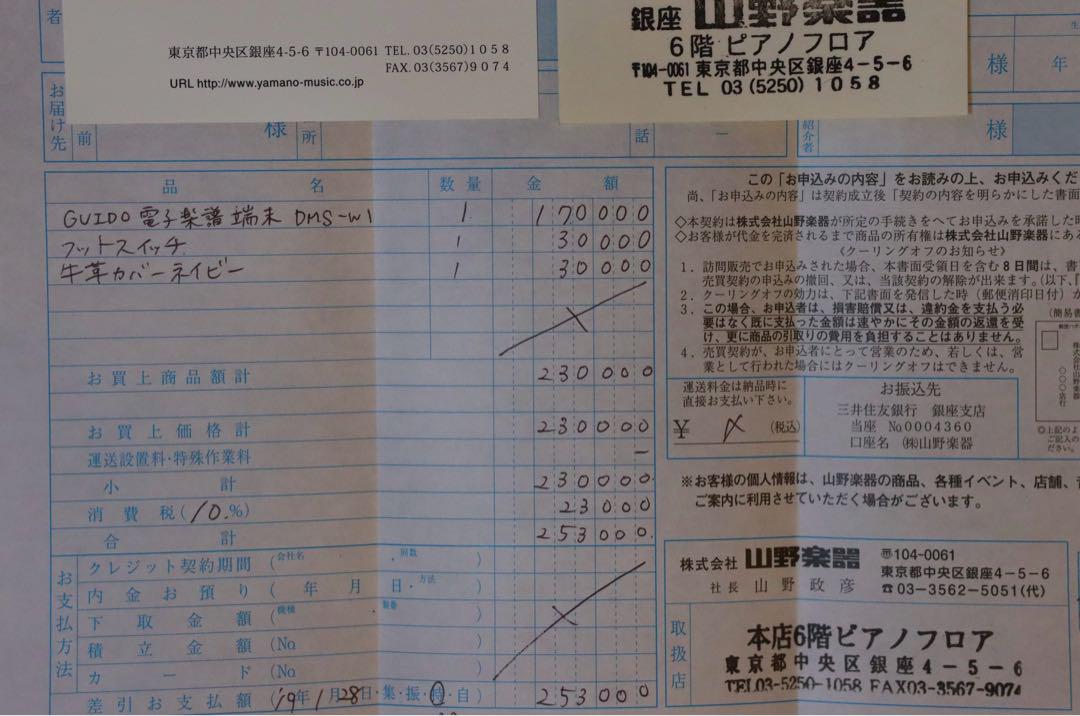 東京都中央区銀座4-5-6 〒104-0061 TEL. 03(5250)1058
FAX. 03(3567)9074
URL http://www.yamano-music.co.jp
銀座 山野楽器
6階 ピアノフロア
〒104-0061 東京都中央区銀座4-5-6
TEL 03 (5250) 1058
者
様
年
お届け先
前
様
所
話
ー
紹介者
様
品 名 数量 金 額
GUIDO 電子楽譜端末 DMS-W1 1 170000
フットスイッチ 1 30000
牛革カバーネイビー 1 30000
お買上商品額計 230000
お買上価格計 230000
運送設置料・特殊作業料 ー
小 計 230000
消費税(10.%) 23000
合 計 253000.
お支払方法
クレジット契約期間 (会社名 ・回数 )
内金お預り ( 年 月 日・方法 )
下取金額 (機種 製番 )
積立金額 (No )
カード (No )
差引お支払額 ('19年1月28日・集・振・持・自) 253000
この「お申込みの内容」をお読みの上、お申込みくだ
尚、「お申込みの内容」は契約成立後「契約の内容を明らかにした書面
◇本契約は株式会社山野楽器が所定の手続きをへてお申込みを承諾した時
◇お客様が代金を完済されるまで商品の所有権は株式会社山野楽器にある
《クーリングオフのお知らせ》
1. 訪問販売でお申込みされた場合、本書面受領日を含む8日間は、書
売買契約の申込みの撤回、又は、当該契約の解除が出来ます。(以下、「
2. クーリングオフの効力は、下記書面を発信した時(郵便消印日付)か
3. この場合、お申込者は、損害賠償又は、違約金を支払う必
要はなく既に支払った金額は速やかにその金額の返還を受
け、更に商品の引取りの費用を負担することはありません。
4. 売買契約が、お申込者にとって営業のため、若しくは、営
業として行われた場合にはクーリングオフはできません。
(簡易書
運送料金は納品時に
直接お支払い下さい。
¥ (税込)
お振込先
三井住友銀行 銀座支店
当座 No.0004360
口座名 ㈱山野楽器
株式会社山野楽器
◎上記のよ
ご記入の
※お客様の個人情報は、山野楽器の商品、各種イベント、店舗、
ご案内に利用させていただく場合がございます。
株式会社 山野楽器 〒104-0061
東京都中央区銀座4-5-6
社長 山野政彦 ☎03-3562-5051(代)
取扱店
本店6階ピアノフロア
東京都中央区銀座4-5-6
TEL03-5250-1058 FAX03-3567-9074